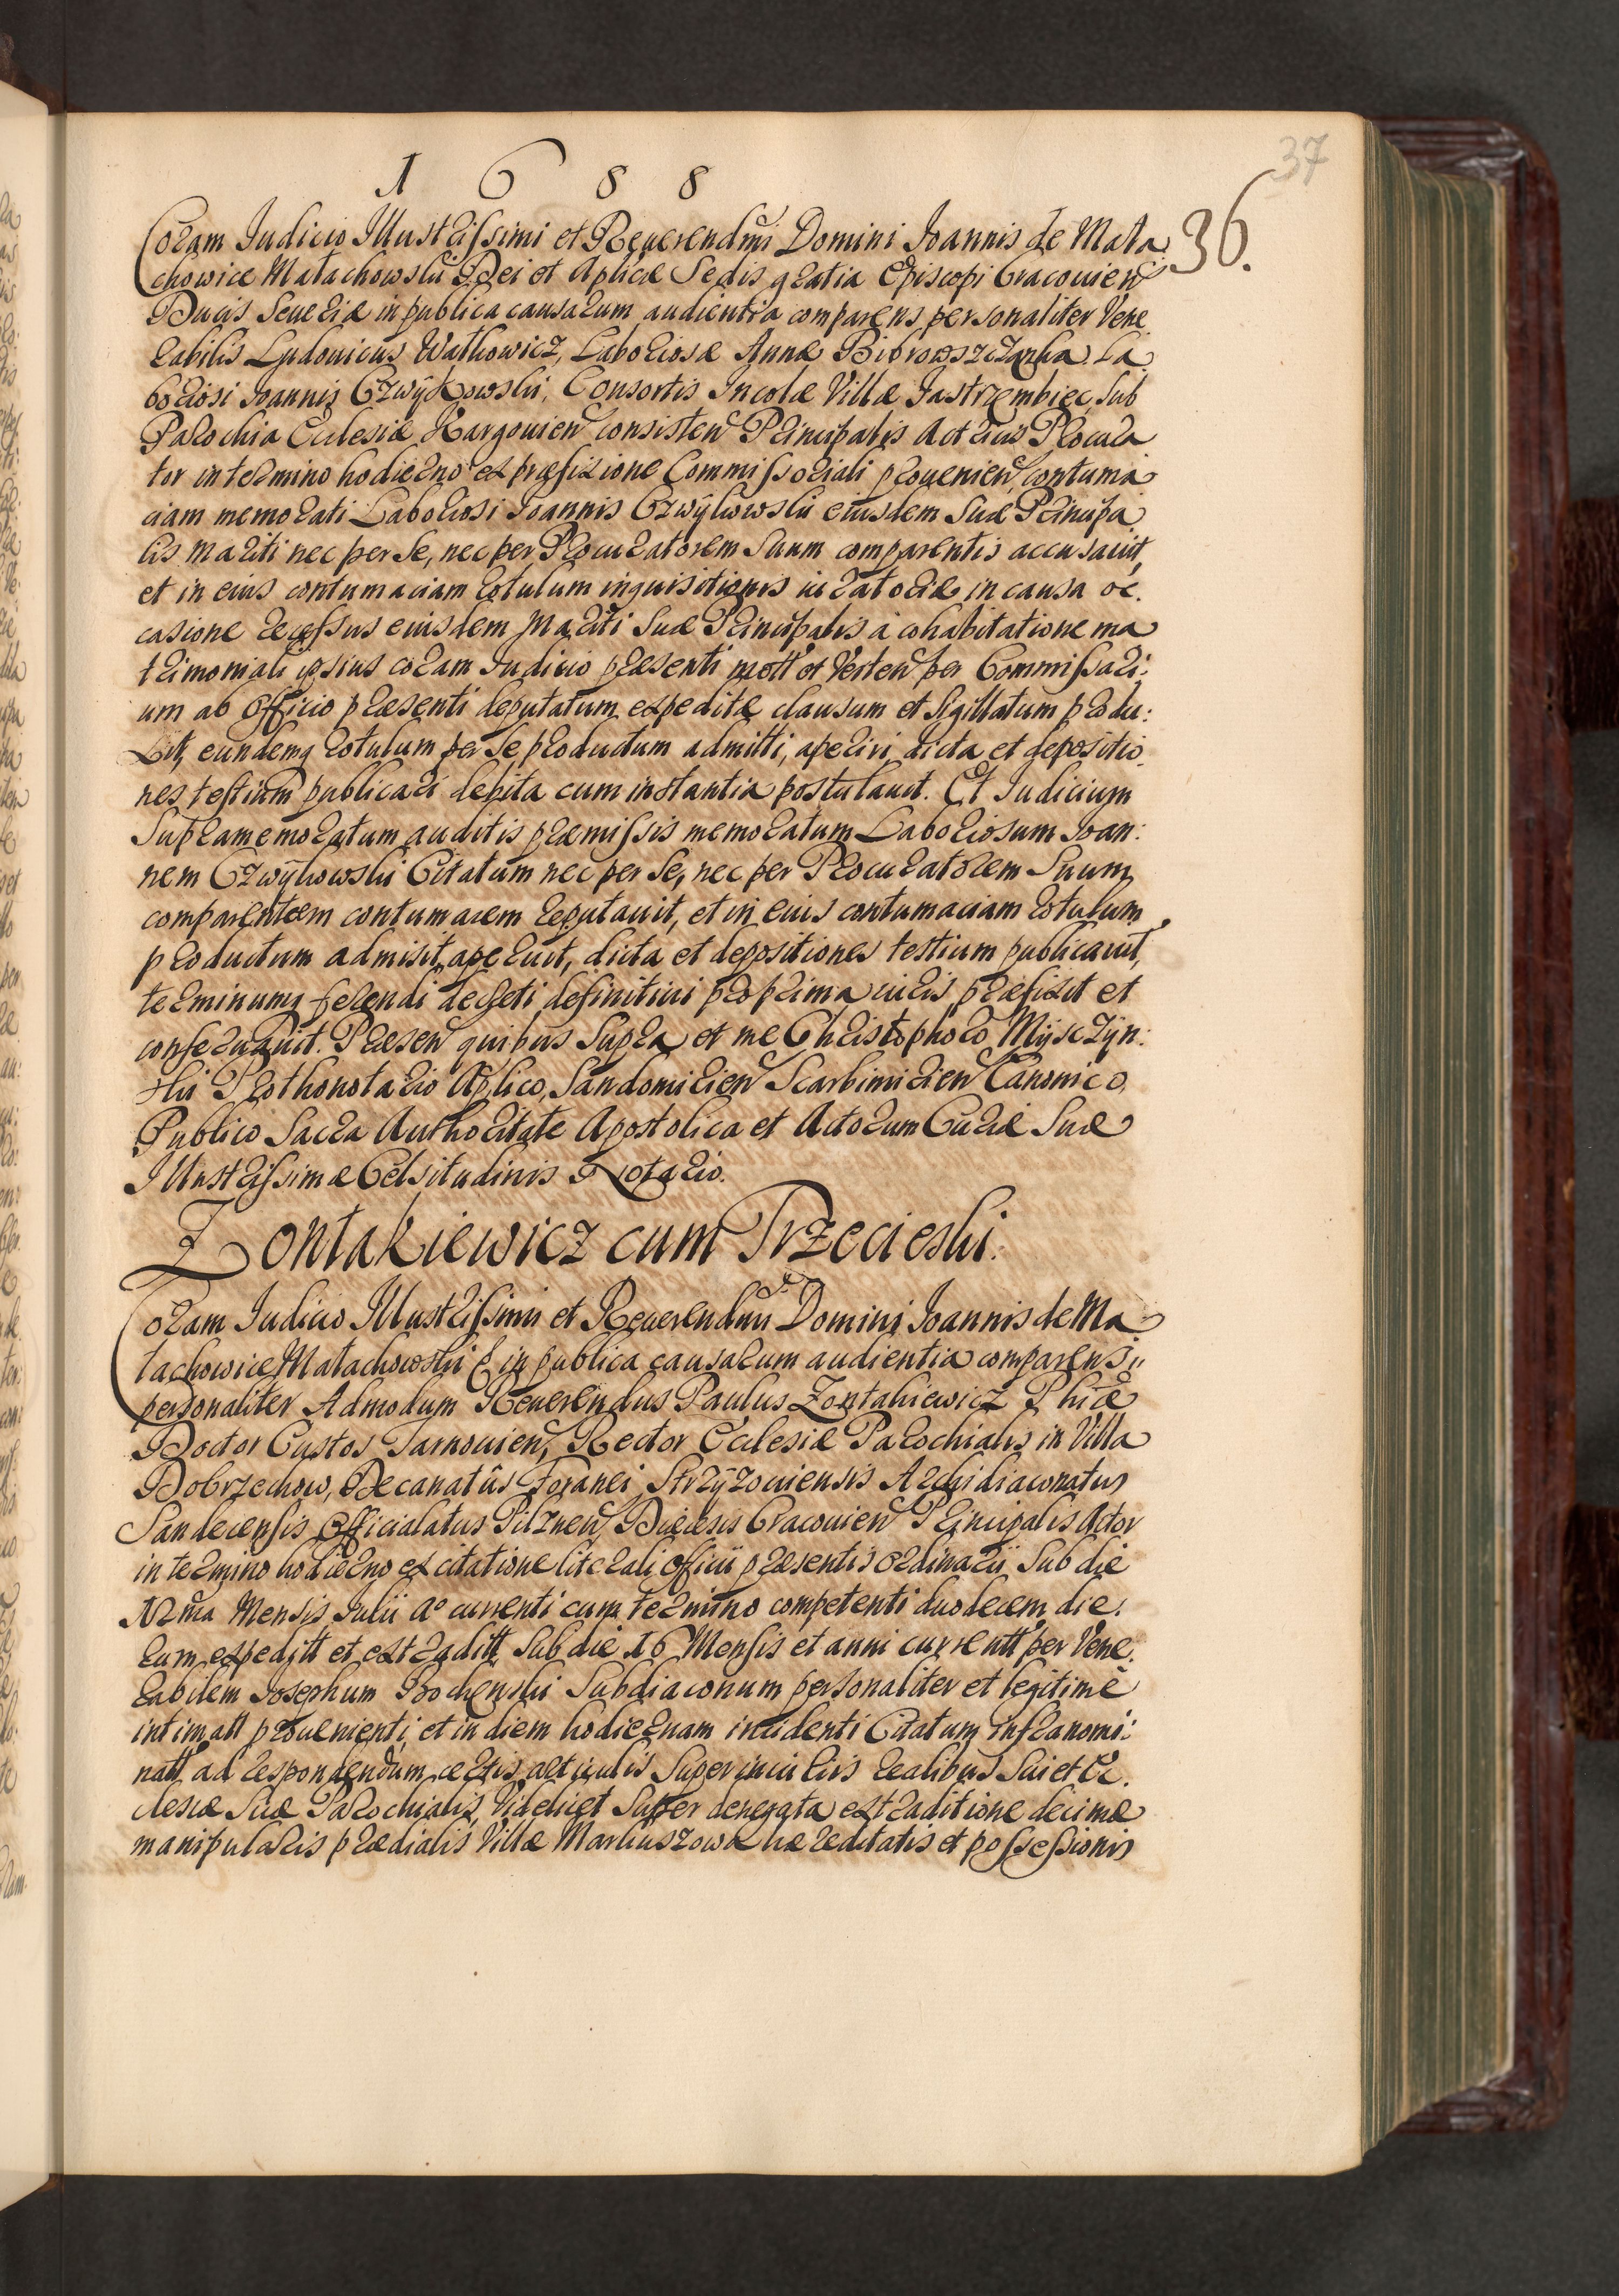 37
1 6 8 8
36.
Coram Judicio Illustrissimi et Reuerendmi Domini Joannis de Mała
chowice Małachowski Dei et Aplicæ Sedis gratia Episcopi Cracouien
Ducis Seueriæ in publica causarum audientia comparens personaliter Vene
rabilis Ludouicus Wathowicz, Laboriosæ Annæ La
boriosi Joannis Czwÿkowski, Consortis Incolæ Villæ Jastrzembiec, Sub
Parochia Ecclesiæ Kargouien consisten Principalis Actricis Procura
tor in termino hodierno ex præfixione Commissoriali prouenien, contuma
ciam memorati Laboriosi Joannis Czwÿkowski eiusdem Suæ Principa
lis mariti nec per Se, nec per Procuratorem Suum comparentis accusauit,
et in eius contumaciam rotulum inquisitionis iuratoriæ in causa oc.
casione recessus eiusdem Mariti Suæ Principalis à cohabitatione ma
trimoniali ipsius coram Judicio præsenti mott et Verten per Commissari:
um ab Officio præsenti deputatum expeditæ clausum et Sigillatum produ:
xit, eundemq rotulum per Se productum admitti, aperiri, dicta et depositio
nes testium publicari debita cum instantia postulauit. Et Judicium
Supramemoratum auditis præmissis memoratum Laboriosum Joan:
nem Czwÿkowski Citatum nec per Se, nec per Procuratorem Suum
comparentem contumacem reputauit, et in eius contumaciam rotulum
productum admisit, aperuit, dicta et depositiones testium publicauit,
terminumq ferendi decreti definitiui pro prima iuris præfixit et
conseruauit. Præsen quibus Supra et me Christophoro Mÿsczÿn:
ski Prothonotario Aplico, Sandomirien Scarbimirien Canonico,
Publico Sacra Authoritate Apostolica et Actorum Curiæ Suæ
Illustrissimæ Celsitudinis Notario.
Zontakiewicz cum Trzecieski.
Coram Judicio Illustrissimi et Reuerendmi Domini Joannis de Ma
łachowice Małachowski in publica causarum audientia comparens
personaliter Admodum Reuerendus Paulus Zontakiewicz Phiæ
Doctor Custos Tarnouien, Rector Ecclesiæ Parochialis in Villa
Dobrzechow, Decanatûs Foranei Strzÿzouiensis Archidiaconatus
Sandecensis Officialatus Pilznen, Diæcesis Cracouien Principalis Actor
in termino hodierno ex citatione literali Officii præsentis ordinarii Sub die
12ma Mensis Julii Ao currenti cum termino competenti duodecem die.
rum expeditt et extraditt Sub die 16 Mensis et anni currentt per Vene.
rabilem Josephum Bochenski Subdiaconum personaliter et legitimè
intimatt prouenienti, et in diem hodiernam incidenti Citatum infranomi:
natt ad respondendum certis articulis Super iniuriis realibus Sui et Ec.
clesiæ Suæ Parochialis, Videlicet Super denegata extraditione decimæ
manipularis prædialis Villæ Markuszowa hæreditatis et possessionis